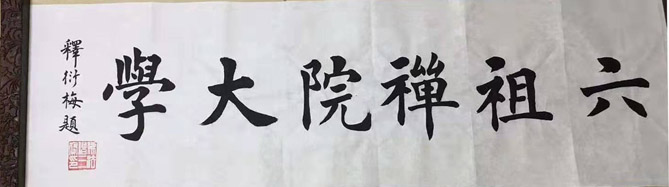 六祖禪院大學
釋衍梅題